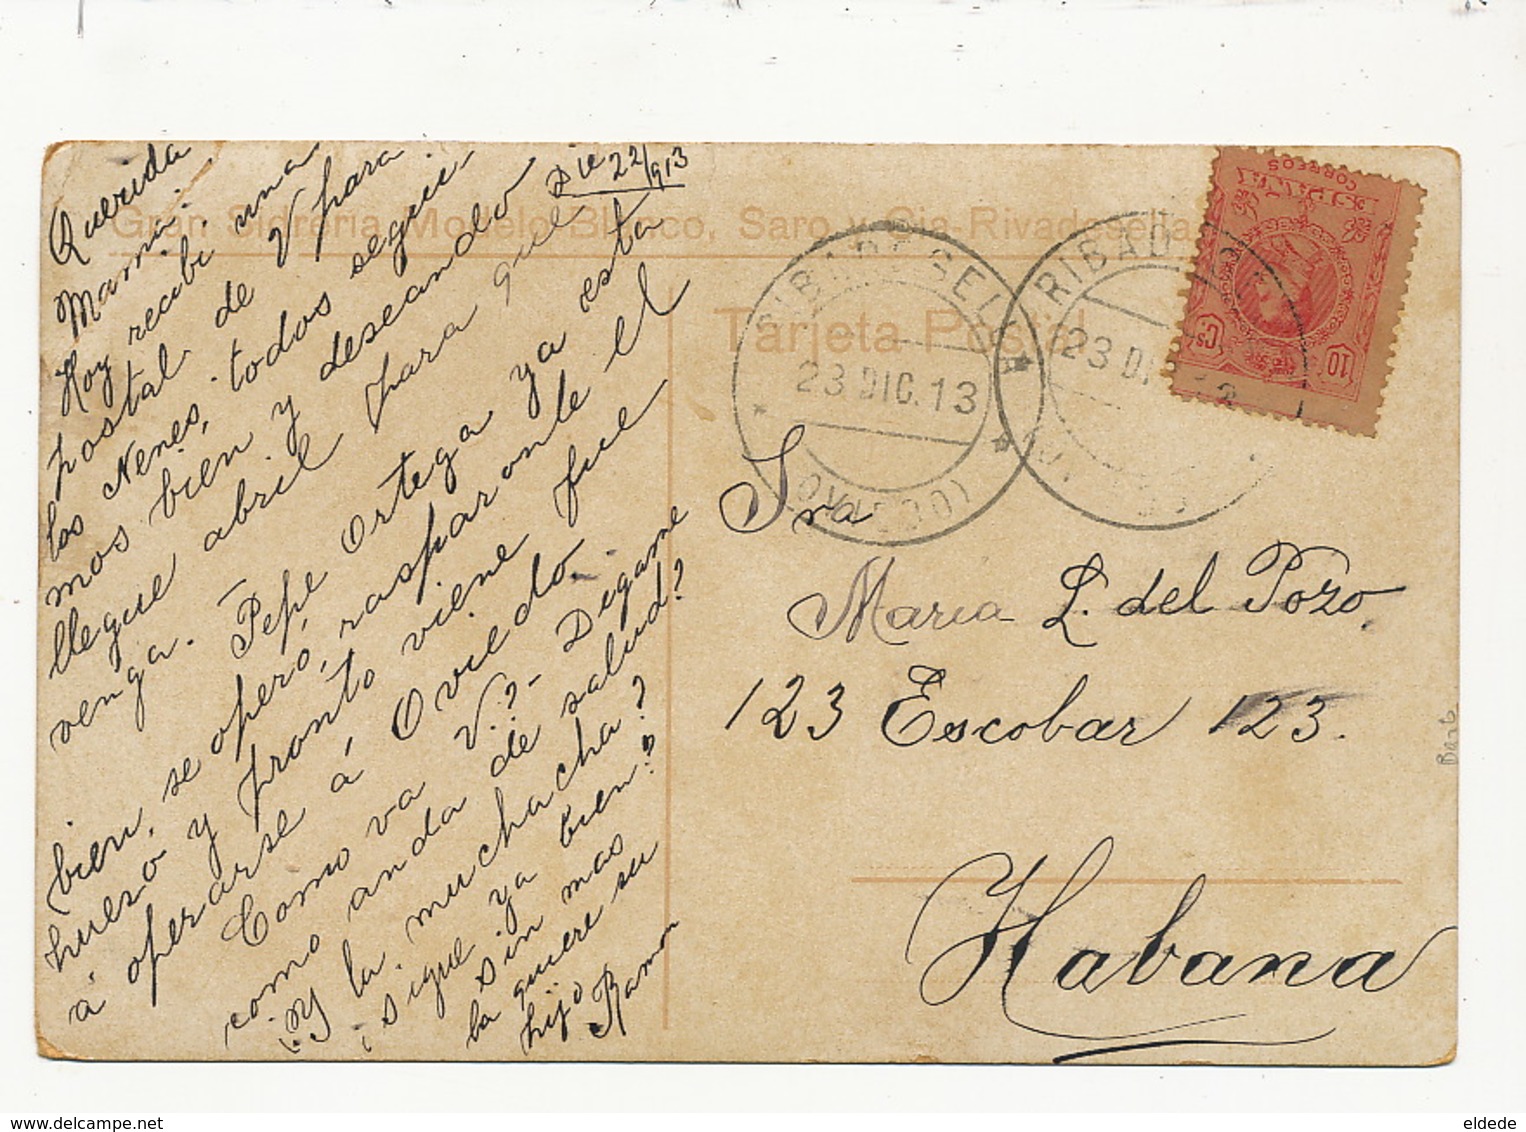 Dic 22/913
Querida
Mamá:
Hoy recibi una
postal de V para
los Nenes, todos segui
mos bien y deseando
llegue abril para que
venga. Pepe Ortega ya esta
bien, se operó, rasparonle el
hueso y pronto viene fue
á operarse á Oviedo.
Como va V.? - Digame
como anda de salud?
¿Y la muchacha?
¿sigue ya bien?
Sin mas
la quiere su
hijo
Ramon
Gran Sidreria Modelo-Blanco, Saro y Cia-Rivadesella
Tarjeta Postal
RIBADESELLA
23 DIC. 13
(OVIEDO)
RIBAD
23 DI
CORREOS
10 Cs
Sra
Maria L. del Pozo.
123 Escobar 123.
Habana
Best
delcampe.net
eldede